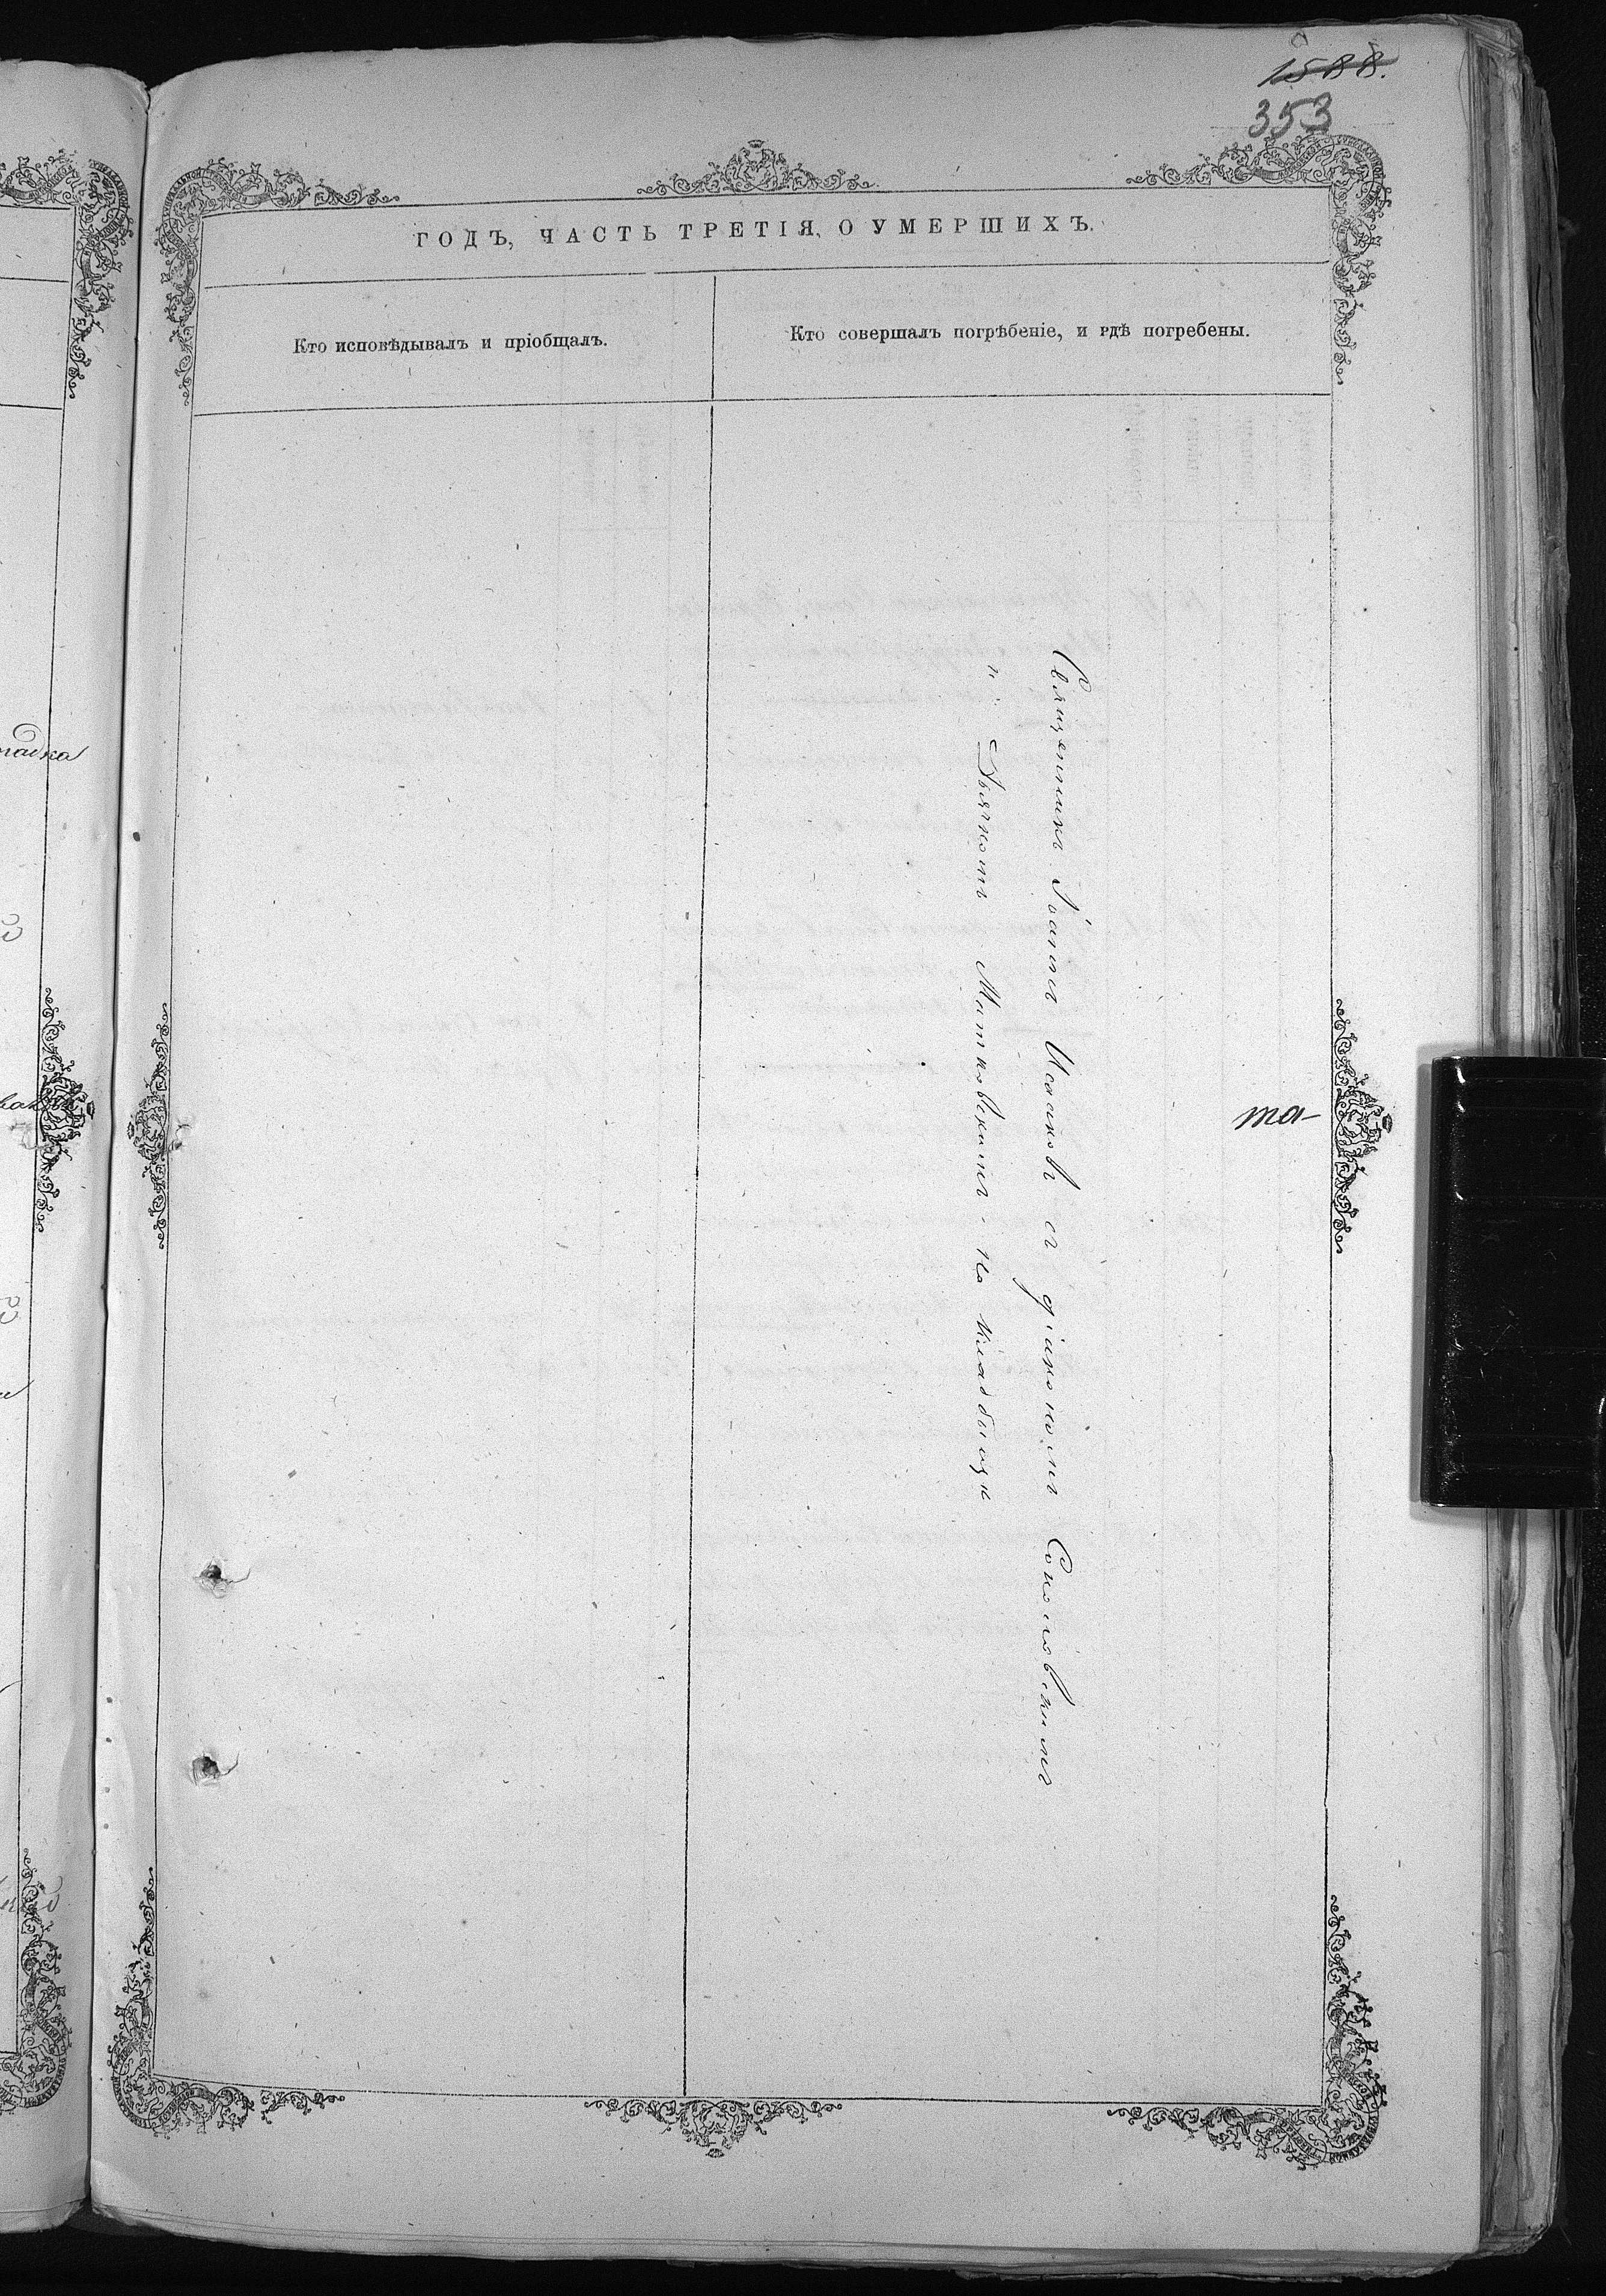 1588.
353
ГОДЪ, ЧАСТЬ ТРЕТІЯ, О УМЕРШИХЪ.
Кто исповѣдывалъ и пріобщалъ.
Кто совершалъ погрѣбеніе, и гдѣ погребены.
Священникъ Іоаннъ Исаковъ съ діакономъ Соколовскимъ
и Дьячкомъ Митковскимъ, на кладбищѣ
та-